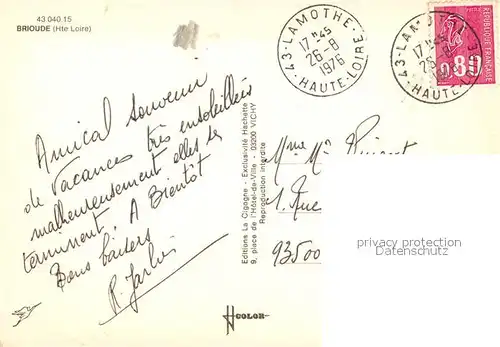 43.040.15
BRIOUDE (Hte Loire)
Amical souvenir
de vacances très ensoleillées
malheureusement elles se
terminent. A Bientôt
Bons baisers
R.
43-LAMOTHE-
17H45
26-8
1976
HAUTE-LOIRE
43-LAM
17H45
26-8
HAUTE-L
REPUBLIQUE FRANÇAISE
0,80
Editions La Cigogne - Exclusivité Hachette
9, place de l'Hôtel-de-Ville - 03200 VICHY
Reproduction interdite
Mme Mr
1. Rue
93500
privacy protection
Datenschutz
COLOR